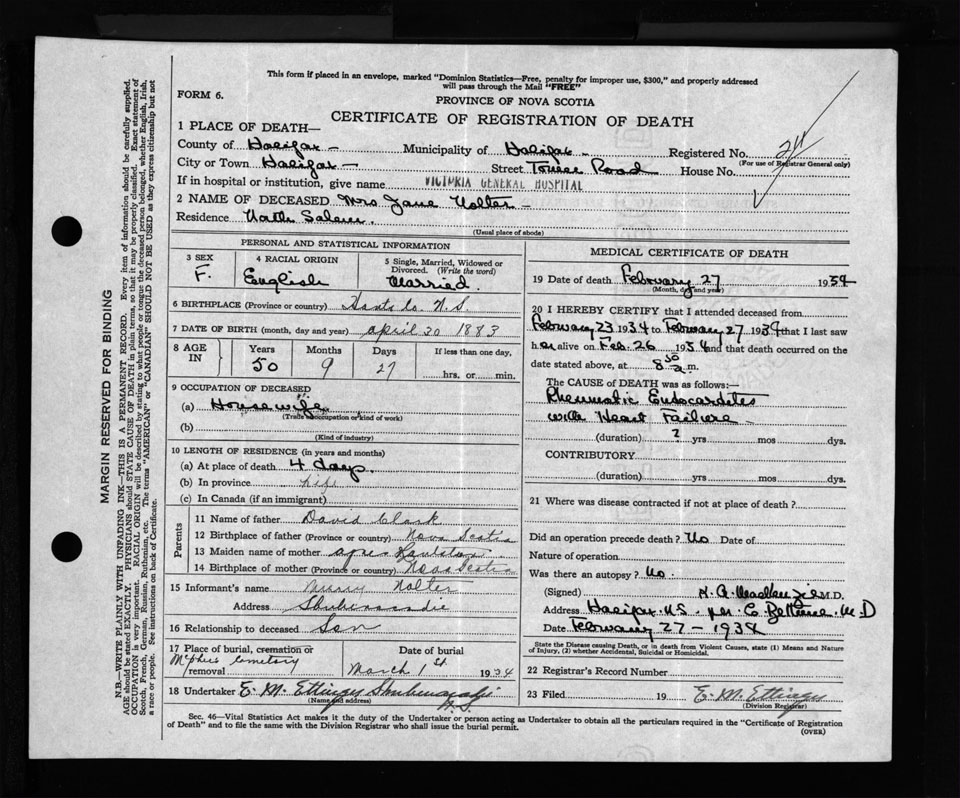 This form if placed in an envelope, marked "Dominion Statistics—Free, penalty for improper use, $300," and properly addressed
will pass through the Mail "FREE"
FORM 6.
PROVINCE OF NOVA SCOTIA
CERTIFICATE OF REGISTRATION OF DEATH
1 PLACE OF DEATH—
County of Halifax — Municipality of Halifax — Registered No.
(For use of Registrar General only)
City or Town Halifax — Street Tower Road House No.
If in hospital or institution, give name VICTORIA GENERAL HOSPITAL
2 NAME OF DECEASED Mrs Jane Nolter —
Residence North Salem.
(Usual place of abode)
PERSONAL AND STATISTICAL INFORMATION
3 SEX 4 RACIAL ORIGIN 5 Single, Married, Widowed or
Divorced. (Write the word)
F. English Married.
6 BIRTHPLACE (Province or country) Hants Co. N.S.
7 DATE OF BIRTH (month, day and year) April 30 1883
8 AGE IN Years Months Days If less than one day,
50 9 27 hrs. or min.
9 OCCUPATION OF DECEASED
(a) Housewife
(Trade occupation or kind of work)
(b)
(Kind of industry)
10 LENGTH OF RESIDENCE (in years and months)
(a) At place of death 4 days.
(b) In province life
(c) In Canada (if an immigrant)
Parents
11 Name of father David Clark
12 Birthplace of father (Province or country) Nova Scotia
13 Maiden name of mother
14 Birthplace of mother (Province or country) Nova Scotia
15 Informant's name Nolter
Address Shubenacadie
16 Relationship to deceased Son
17 Place of burial, cremation or removal Date of burial
McPhee Cemetery March 1st 1934
18 Undertaker E. M. Ettinger Shubenacadie
(Name and address) N.S.
MEDICAL CERTIFICATE OF DEATH
19 Date of death February 27 1934
(Month, day and year)
20 I HEREBY CERTIFY that I attended deceased from
February 23 1934 to February 27 1934 that I last saw
her alive on Feb. 26 1934 and that death occurred on the
date stated above, at 8 30 a m.
The CAUSE OF DEATH was as follows:
Rheumatic Endocarditis
with Heart Failure —
(duration) 2 yrs mos dys.
CONTRIBUTORY
(duration) yrs. mos. dys.
21 Where was disease contracted if not at place of death?
Did an operation precede death? No Date of
Nature of operation
Was there an autopsy? No.
(Signed) MacKenzie M.D.
Address Halifax. N.S. per C. M.D
Date February 27 - 1934
State the Disease causing Death, or in death from Violent Causes, state (1) Means and Nature
of Injury, (2) whether Accidental, Suicidal or Homicidal.
22 Registrar's Record Number
23 Filed 19 E. M. Ettinger
(Division Registrar)
Sec. 46—Vital Statistics Act makes it the duty of the Undertaker or person acting as Undertaker to obtain all the particulars required in the "Certificate of Registration
of Death" and to file the same with the Division Registrar who shall issue the burial permit.
(OVER)
MARGIN RESERVED FOR BINDING
N.B.—WRITE PLAINLY WITH UNFADING INK—THIS IS A PERMANENT RECORD. Every item of information should be carefully supplied.
AGE should be stated EXACTLY. PHYSICIANS should STATE CAUSE OF DEATH in plain terms, so that it may be properly classified. Exact statement of
OCCUPATION is very important. RACIAL ORIGIN will be described by stating to what people or tongue the deceased person belonged, whether English, Irish,
Scotch, French, German, Russian, Ruthenian, etc. The terms "AMERICAN" or "CANADIAN" SHOULD NOT BE USED as they express citizenship but not
a race or people. See instructions on back of Certificate.